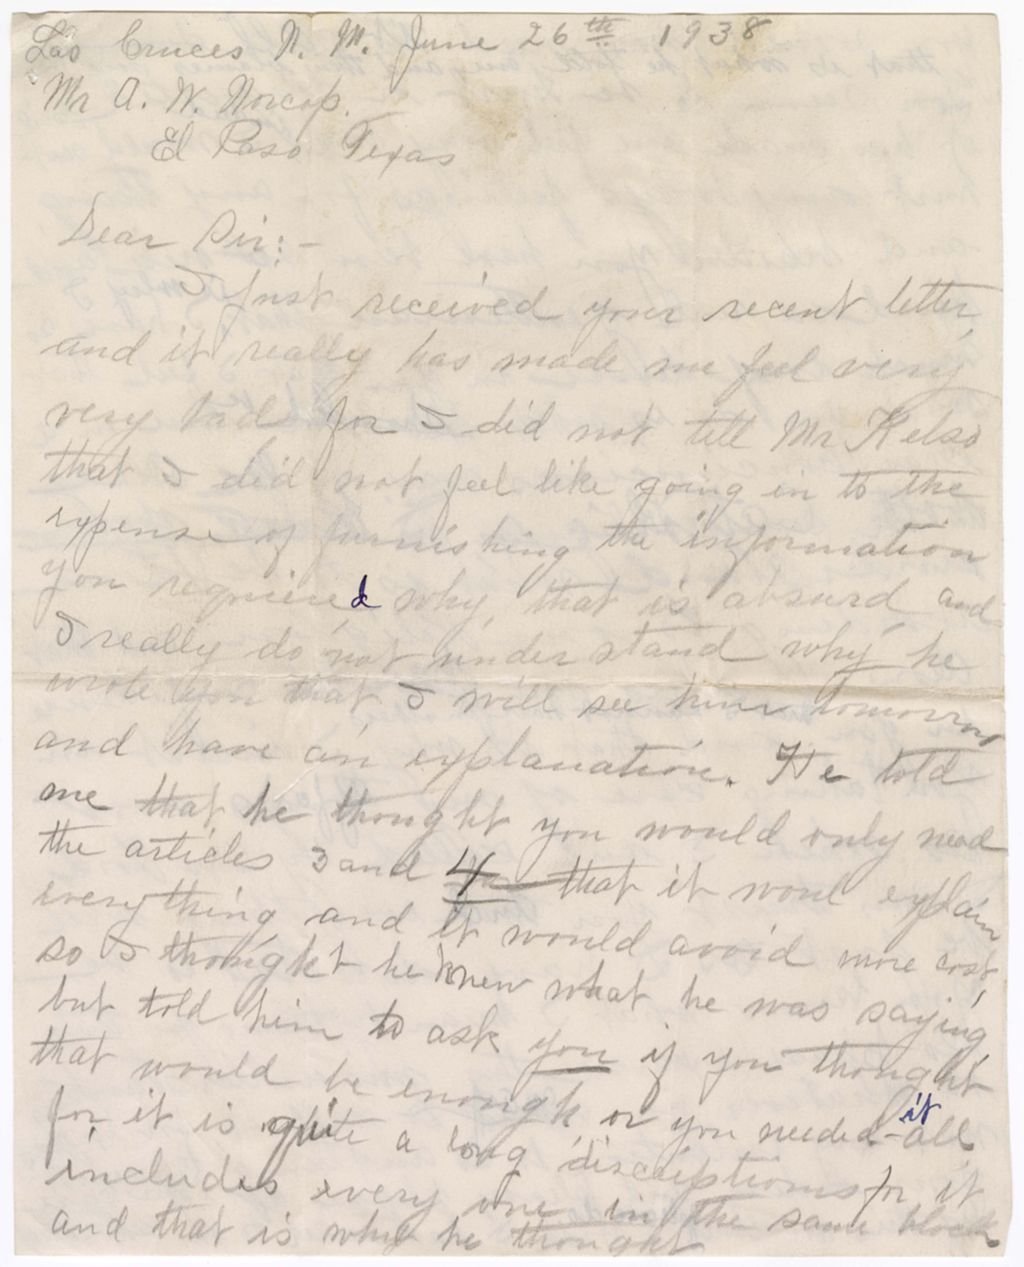 Las Cruces N. M. June 26th 1938
Mr A. W. Norcop.
El Paso Texas
Dear Sir:-
I just received your recent letter,
and it really has made me feel very
very bad for I did not tell Mr Kelso
that I did not feel like going in to the
expense of furnishing the information
you requiered, why, that is absurd and
I really do not understand why he
wrote you that I will see him tomorrow
and have an explanation. He told
me that he thought you would only need
the articles 3 and 4 that it woul explain
everything and it would avoid more cost,
so I thought he knew what he was saying,
but told him to ask you if you thought
that would be enough or you needed it all
for it is quite a long discriptions for it
includes every one in the same block
and that is why he thought